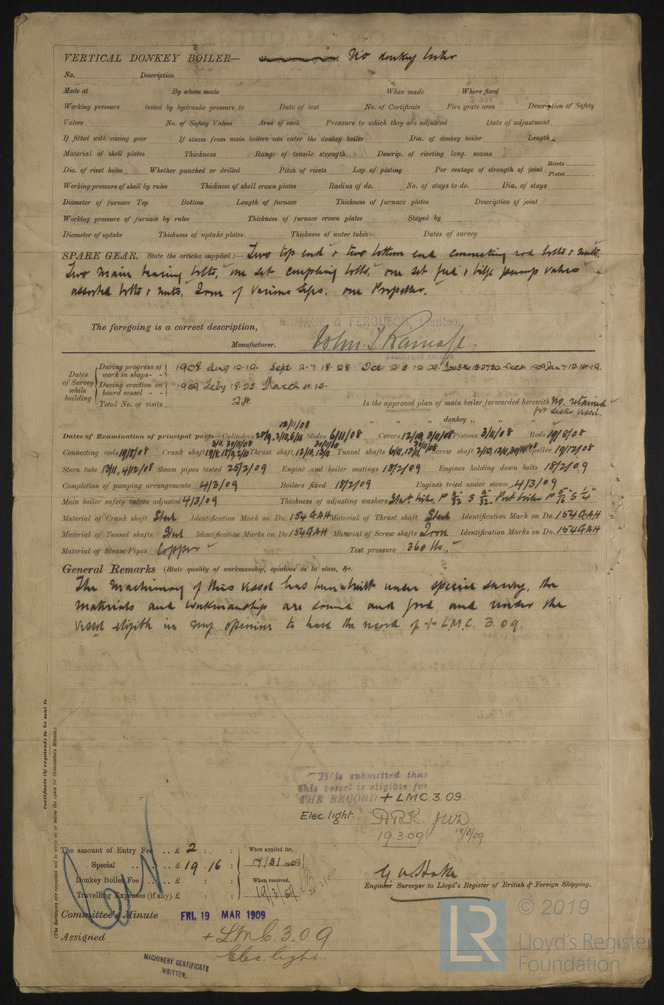 VERTICAL DONKEY BOILER— No donkey boiler
No. Description
Made at By whom made When made Where fixed
Working pressure tested by hydraulic pressure to Date of test No. of Certificate Fire grate area Description of Safety
Valves No. of Safety Valves Area of each Pressure to which they are adjusted Date of adjustment
If fitted with easing gear If steam from main boilers can enter the donkey boiler Dia. of donkey boiler Length
Material of shell plates Thickness Range of tensile strength Descrip. of riveting long. seams
Dia. of rivet holes Whether punched or drilled Pitch of rivets Lap of plating Per centage of strength of joint Rivets Plates
Working pressure of shell by rules Thickness of shell crown plates Radius of do. No. of stays to do. Dia. of stays
Diameter of furnace Top Bottom Length of furnace Thickness of furnace plates Description of joint
Working pressure of furnace by rules Thickness of furnace crown plates Stayed by
Diameter of uptake Thickness of uptake plates Thickness of water tubes Dates of survey
SPARE GEAR. State the articles supplied:— Two top end & two bottom end connecting rod bolts & nuts.
Two main bearing bolts, one set coupling bolts, one set feed & bilge pump valves
assorted bolts & nuts, Iron of various sizes. one Propeller.
The foregoing is a correct description,
& FERGUSON, Limited.
Manufacturer.
Dates of Survey while building
During progress of work in shops - - 1908 Aug 12. 19. Sept 2. 7. 18. 28 Oct
During erection on board vessel - - - 1909 Feby 18. 25 March 4. 15.
Total No. of visits 24 Is the approved plan of main boiler forwarded herewith No. retained for sister vessel.
" " " donkey " " "
Dates of Examination of principal parts—Cylinders Slides 6/11/08 Covers Pistons 3/11/08 Rods 19/8/08
Connecting rods 19/8/08 Crank shaft Thrust shaft Tunnel shafts Screw shaft Propeller 19/12/08
Stern tube Steam pipes tested 25/2/09 Engine and boiler seatings 18/2/09 Engines holding down bolts 18/2/09
Completion of pumping arrangements 4/3/09 Boilers fixed 18/2/09 Engines tried under steam 4/3/09
Main boiler safety valves adjusted 4/3/09 Thickness of adjusting washers
Material of Crank shaft Steel Identification Mark on Do. 154GAH Material of Thrust shaft Steel Identification Mark on Do. 154GAH
Material of Tunnel shafts Steel Identification Marks on Do. 154GAH Material of Screw shafts Iron Identification Marks on Do. 154GAH
Material of Steam Pipes Copper Test pressure 360 lbs.
General Remarks (State quality of workmanship, opinions as to class, &c.
The Machinery of this vessel has been built under special survey, the
materials and workmanship are sound and good and render the
vessel eligible in my opinion to have the record of + L.M.C. 3.09.
It is submitted that
this vessel is eligible for
THE RECORD + LMC 3.09.
Elec. light.
19.3.09
19/3/09
The amount of Entry Fee . . £ 2 : : When applied for,
Special . . £ 19 : 16 : 17/3/1909
Donkey Boiler Fee . . £ : : When received,
Travelling Expenses (if any) £ : : 19/3/09
Engineer Surveyor to Lloyd's Register of British & Foreign Shipping.
Committee's Minute FRI. 19 MAR 1909
Assigned + L.M.C. 3.09
Elec. light
MACHINERY CERTIFICATE
WRITTEN.
Certificate (if required) to be sent to
(The Surveyors are requested not to write on or below the space for Committee's Minute.)
LR © 2019
Lloyd's Register
Foundation